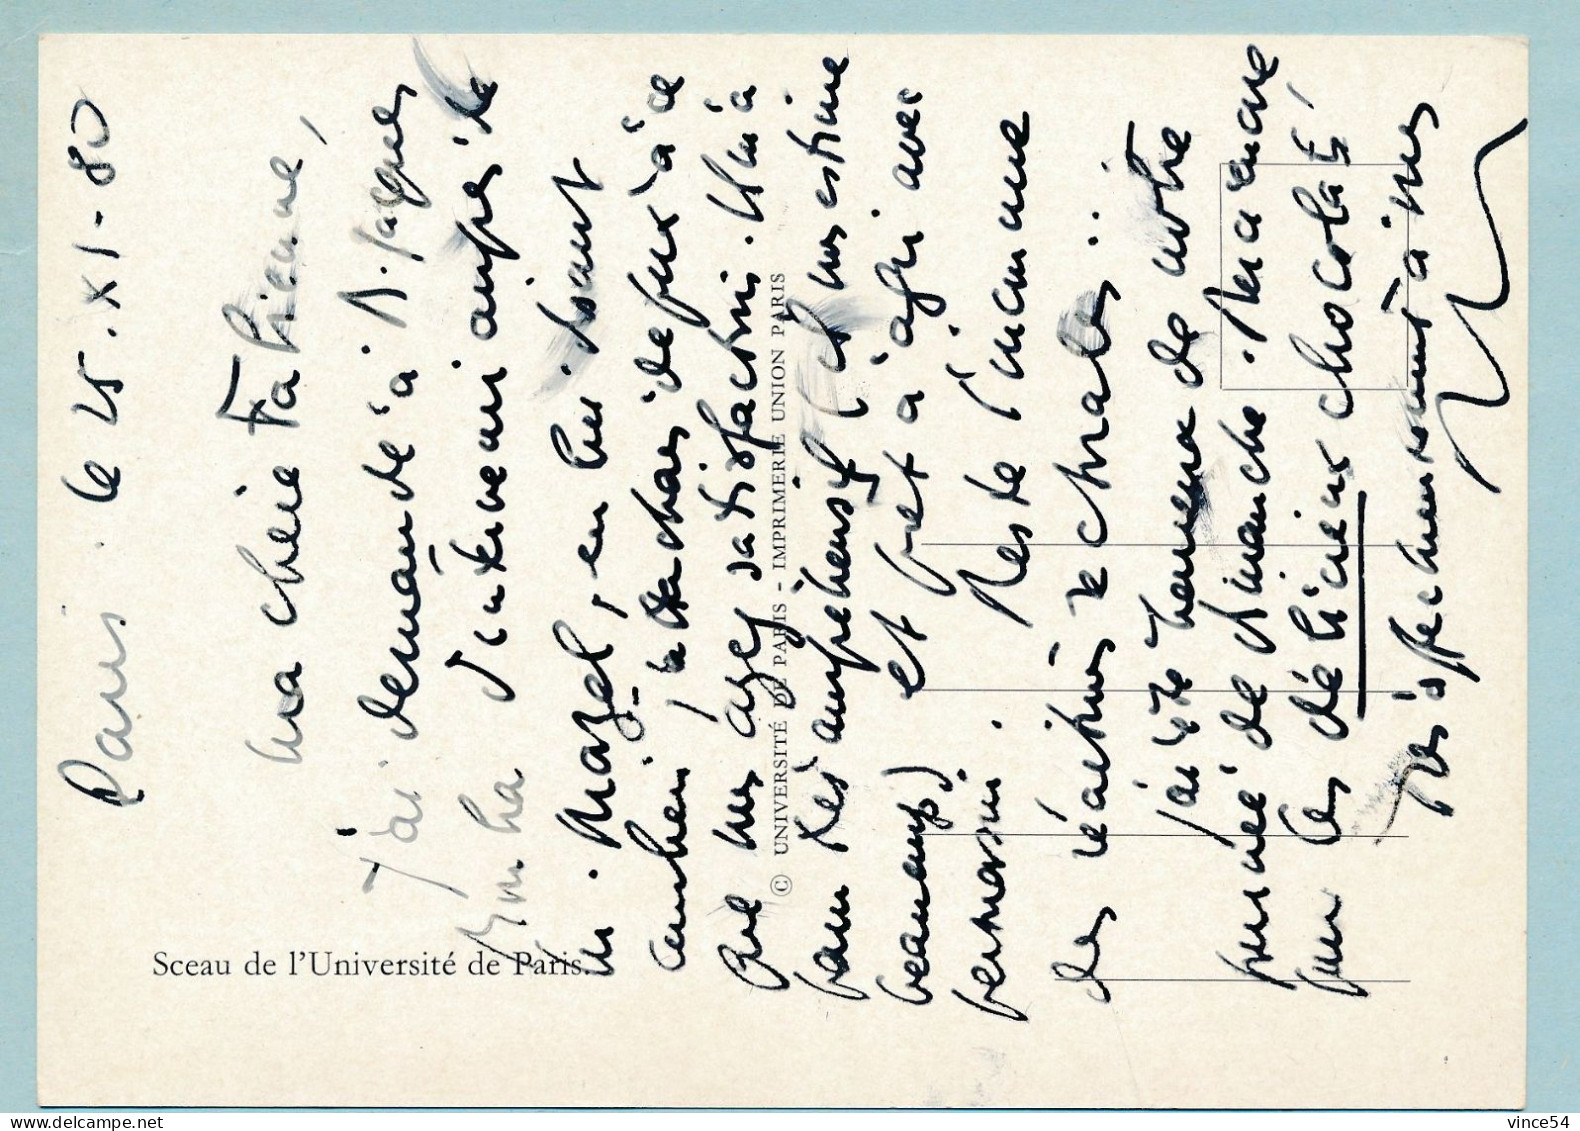 Paris. le 25.XI-80
Ma chère Fabienne,
J'ai demandé à M. Jacques
d'intervenir auprès de
M. Mazel, en lui disant
combien j'attachais de prix à ce
que vous ayez satisfaction. Il m'a
paru très compréhensif (il vous estime
beaucoup) et prêt à agir avec
permission. Reste l'inconnue
des réactions rectorales...
J'ai été heureux de notre
journée de dimanche. Merci encore
pour les délicieux chocolats,
Très affectueusement à vous
Sceau de l'Université de Paris.
© UNIVERSITÉ DE PARIS - IMPRIMERIE UNION PARIS
delcampe.net
vince54